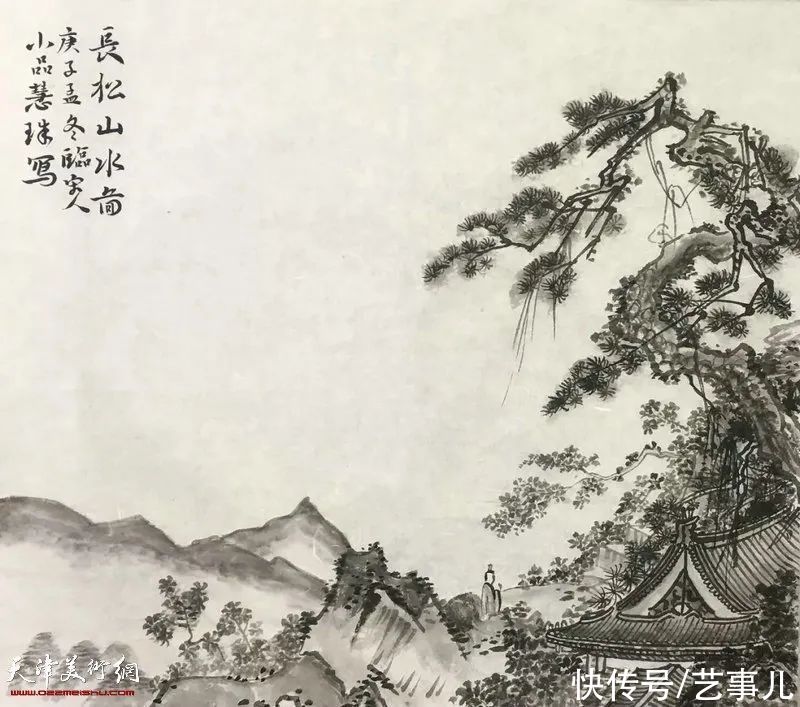 長松山水畄
庚子孟冬臨宋人
小品慧珠写
天津美術網
www.022meishu.com
快传号/艺事儿